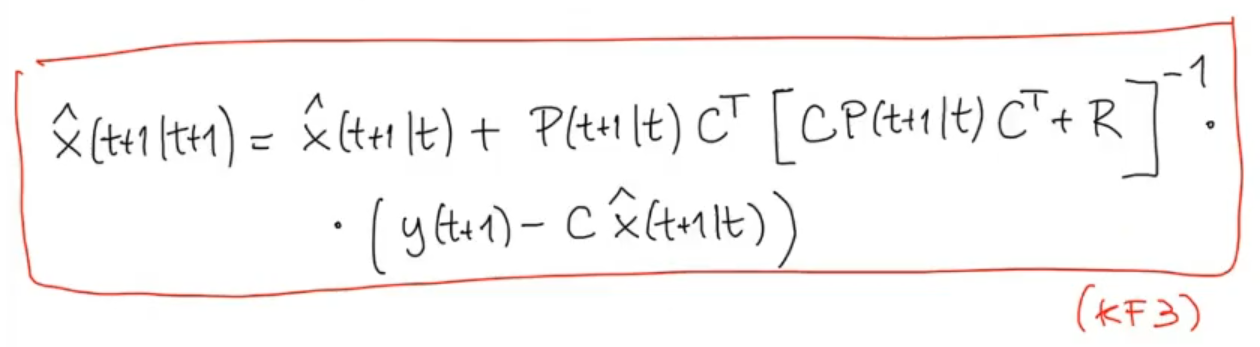 x̂(t+1|t+1) = x̂(t+1|t) + P(t+1|t) Cᵀ [CP(t+1|t) Cᵀ + R]⁻¹ ·
· (y(t+1) − C x̂(t+1|t))
(KF3)